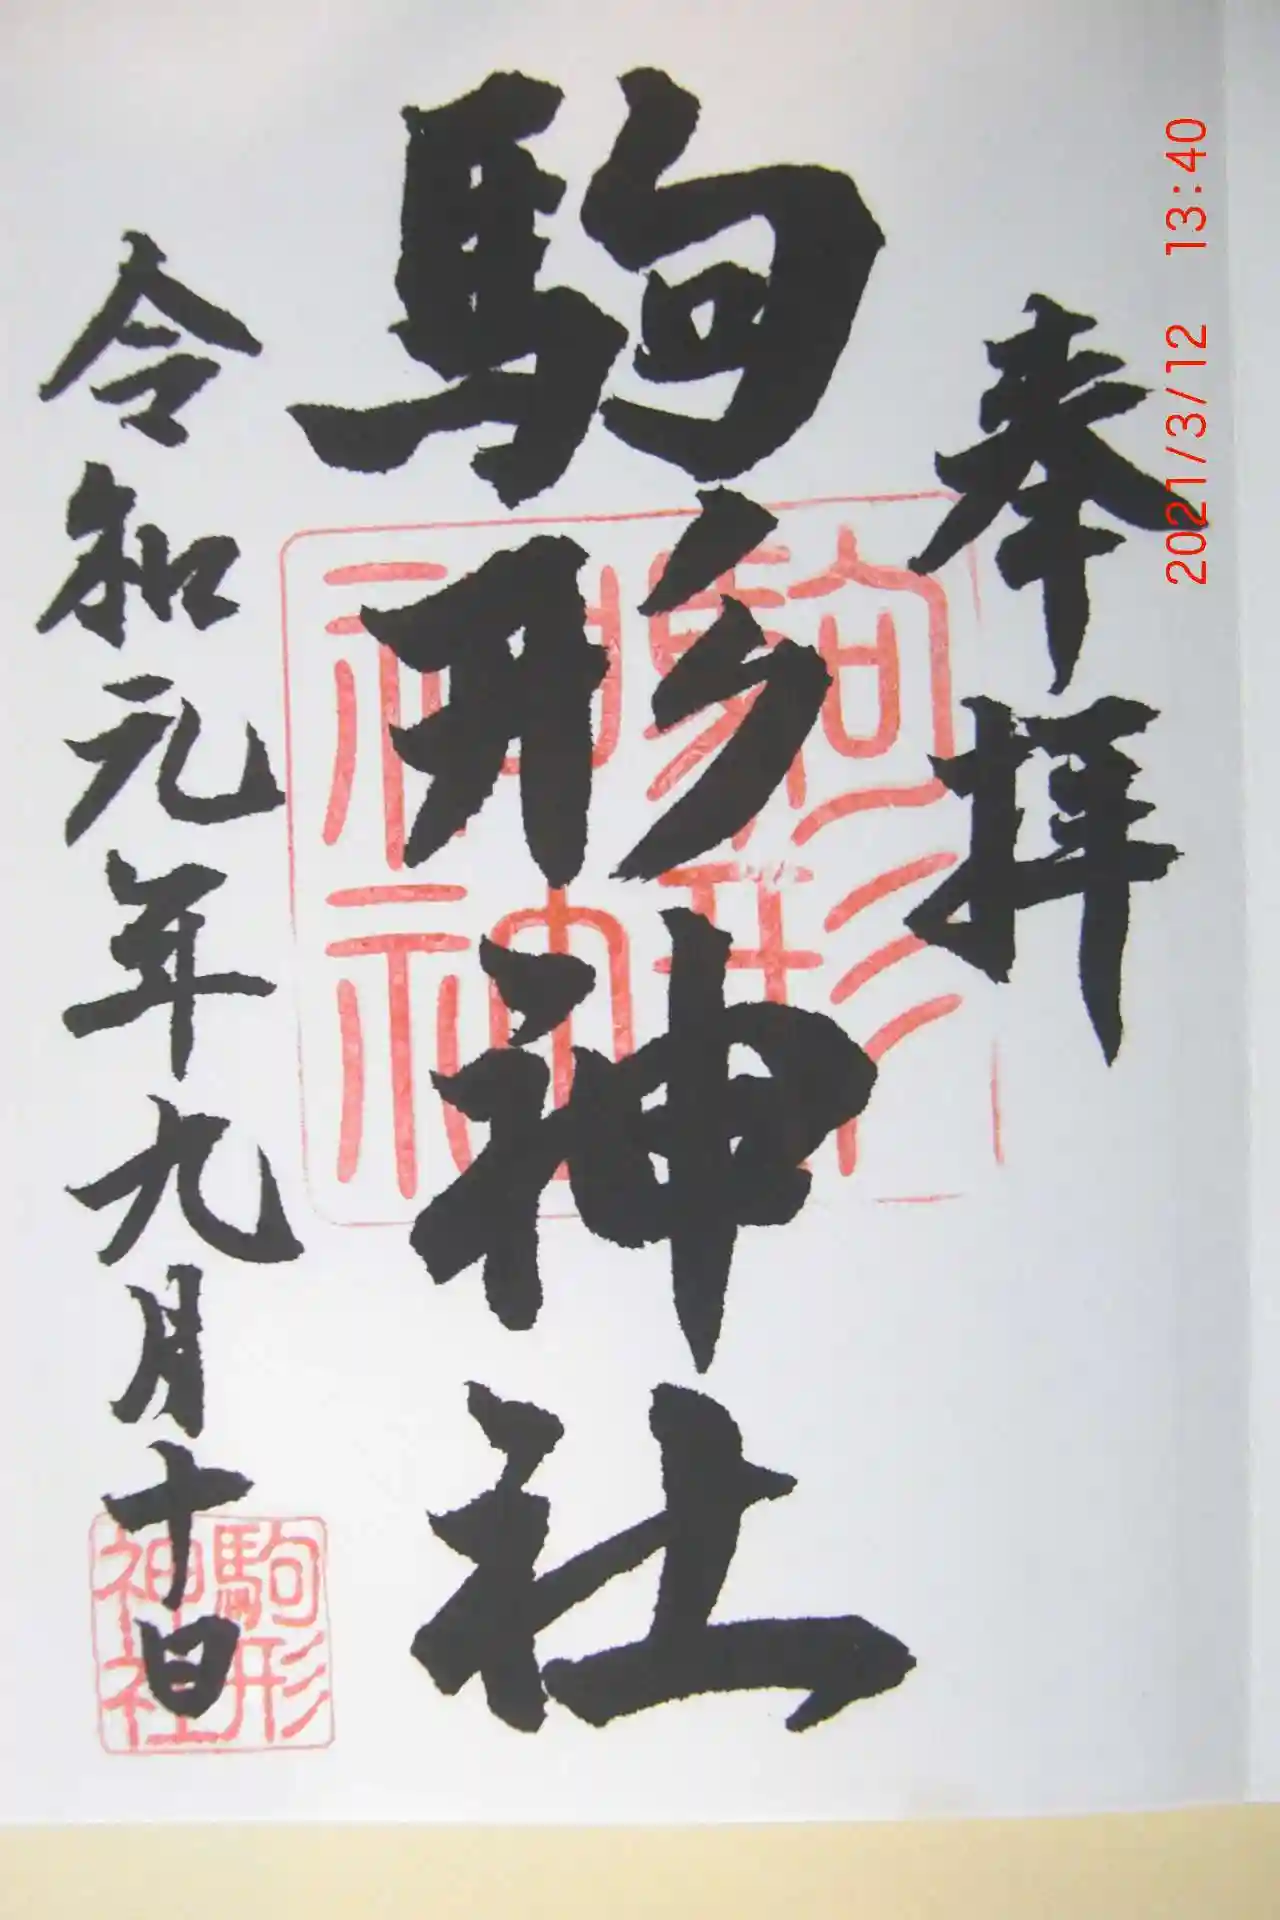 奉拝
駒形神社
令和元年九月十日
駒形
神社
2021/3/12 13:40